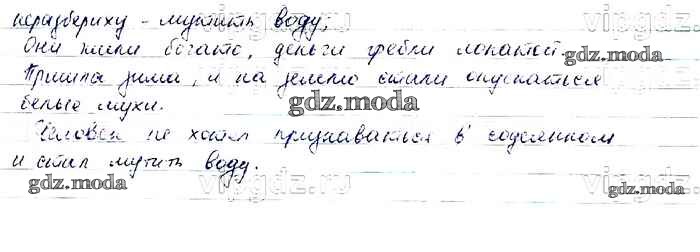 неразбериху - мутить воду;
Они жили богато, деньги гребли лопатой.
gdz.moda
Пришла зима, и на землю стали опускаться
белые мухи.
gdz.moda
gdz.moda
Человек не хотел признаваться в содеянном
и стал мутить воду.
gdz.moda
gdz.moda
gdz.moda
vipgdz.ru